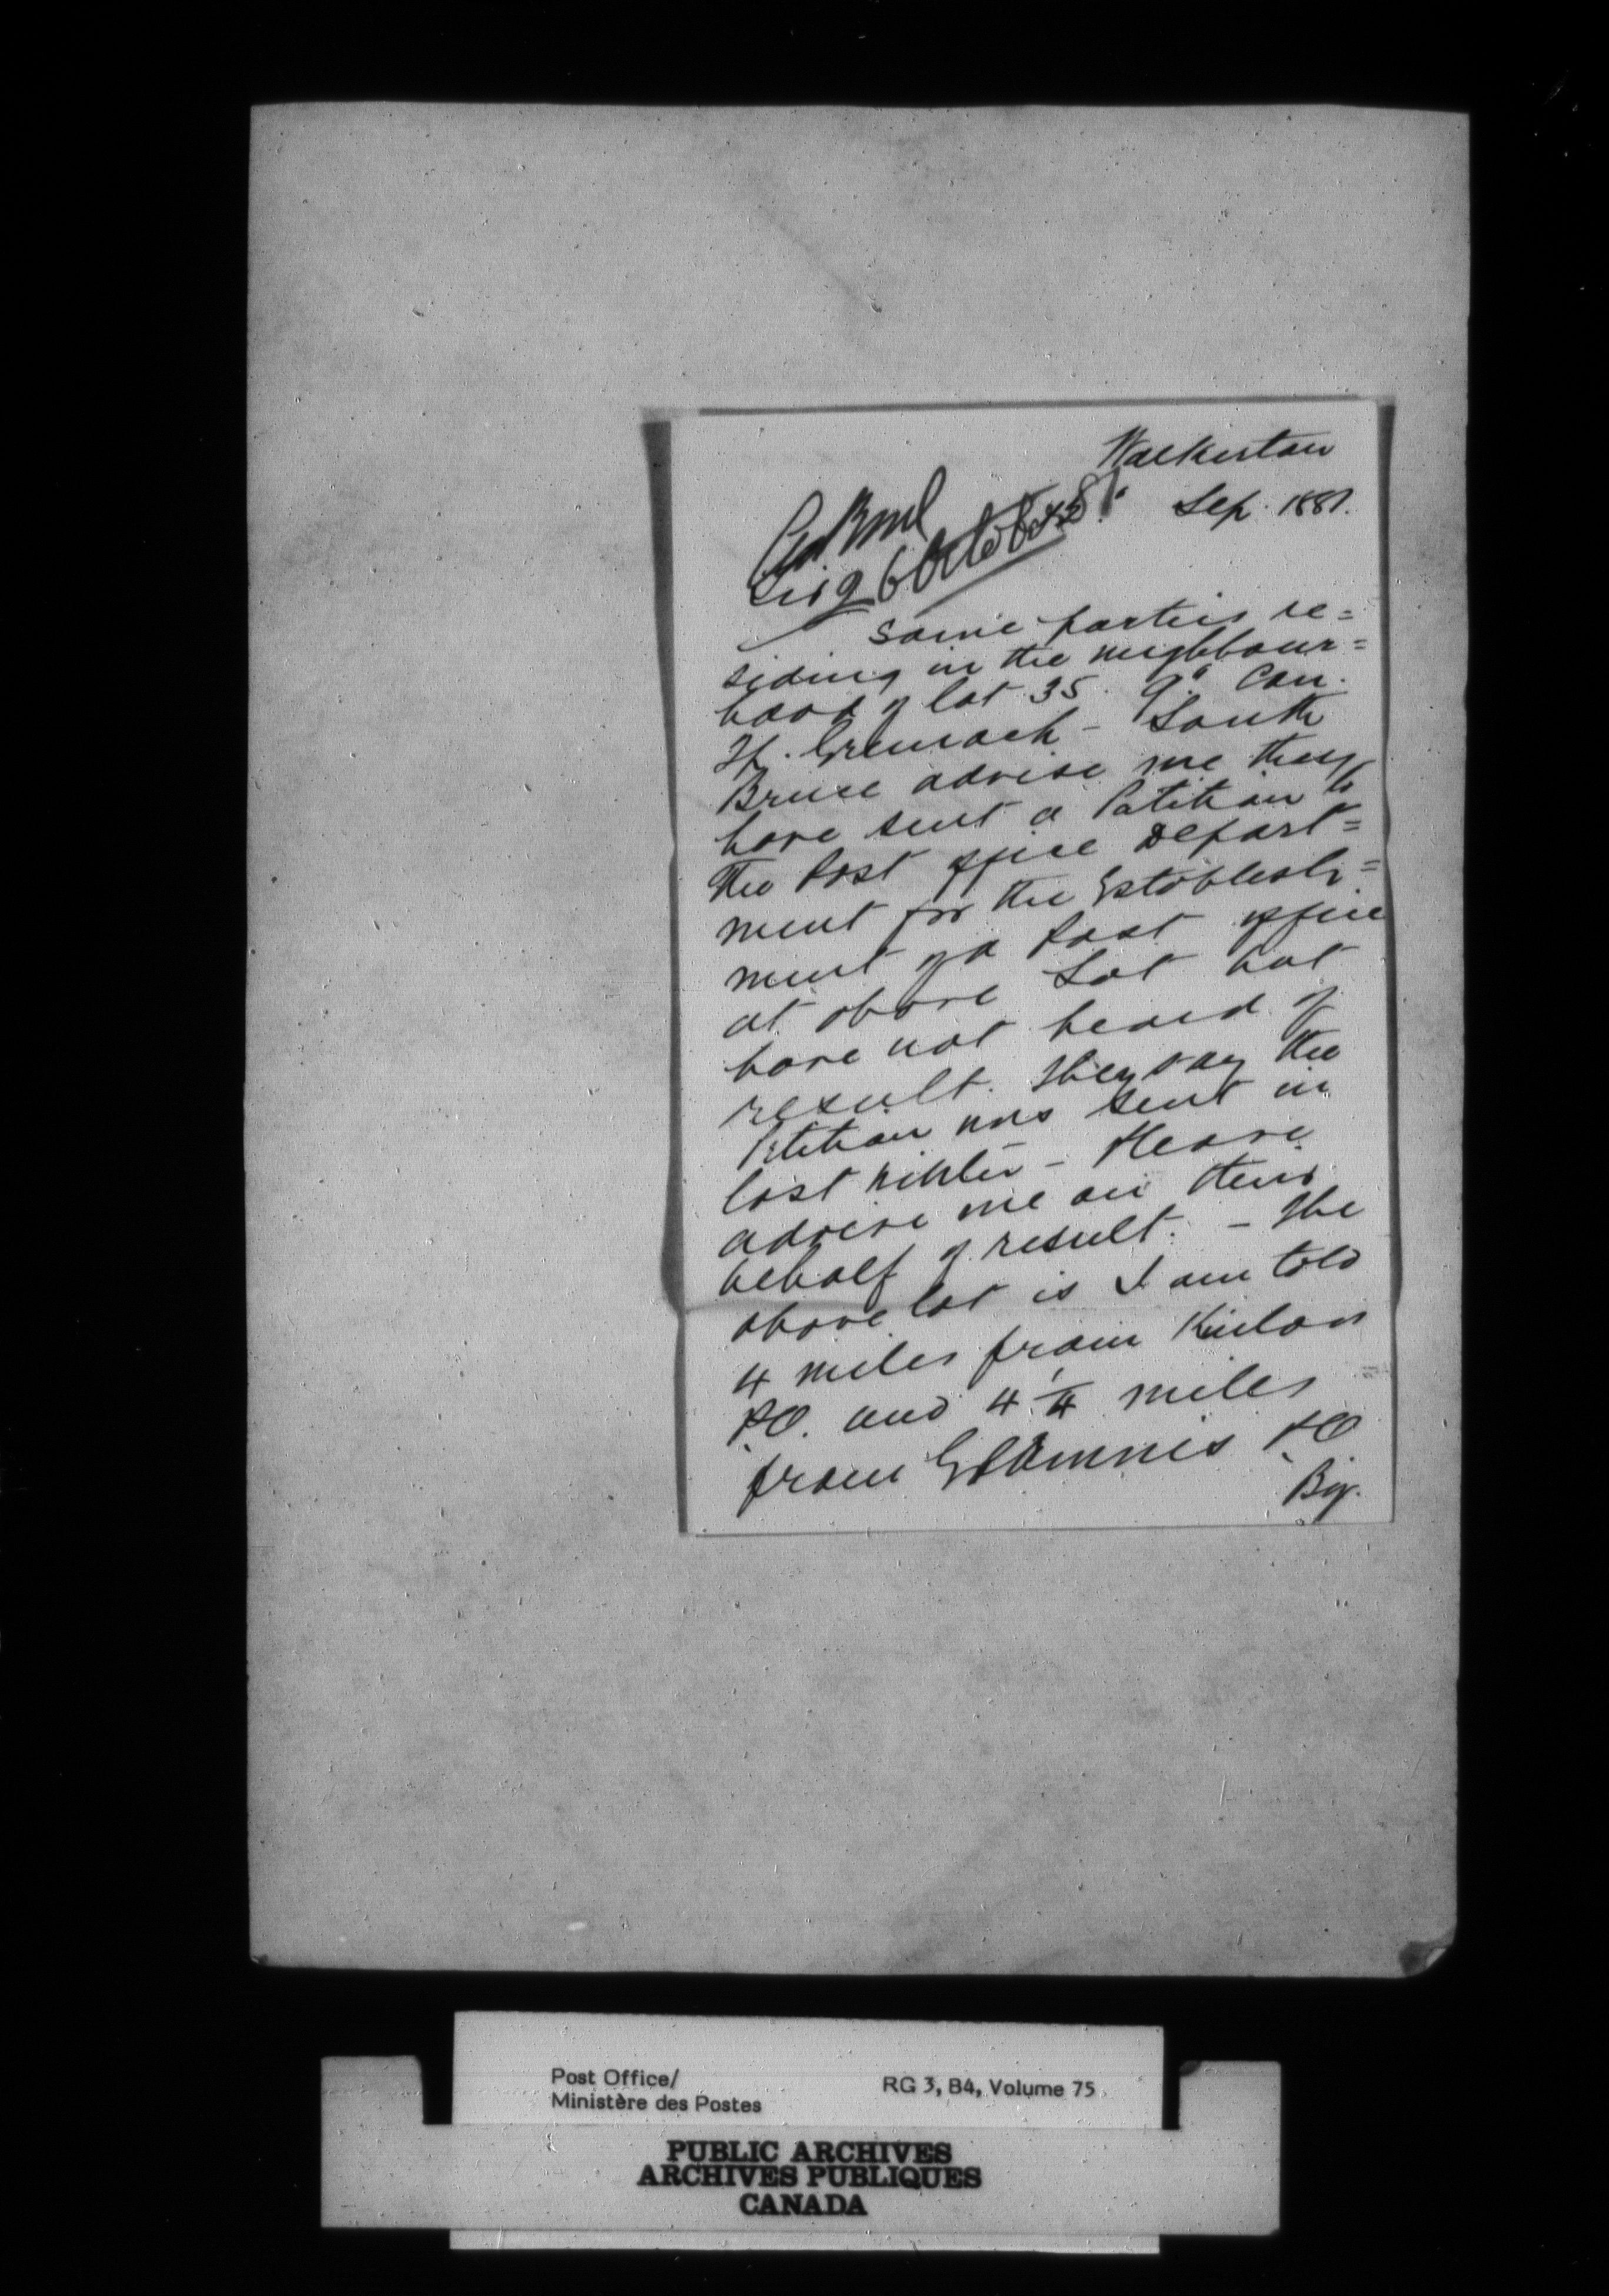 Walkerton
Sep. 1881.
6 October 81.
Some parties re=
siding in the neighbour=
hood of lot 35. 9" Con.
Tp. Greenock - South
Bruce advise me they
have sent a Petition to
the Post office Depart=
ment for the Establish=
ment of a Post office
at above Lot but
have not heard of
result. They say the
Petition was sent in
last winter - Please
advise me on their
behalf of result. - The
above lot is I am told
4 miles from Kinloss
P.O. and 4 1/4 miles
from Glammis P.O.
Post Office/
Ministère des Postes
RG 3, B4, Volume 75
PUBLIC ARCHIVES
ARCHIVES PUBLIQUES
CANADA